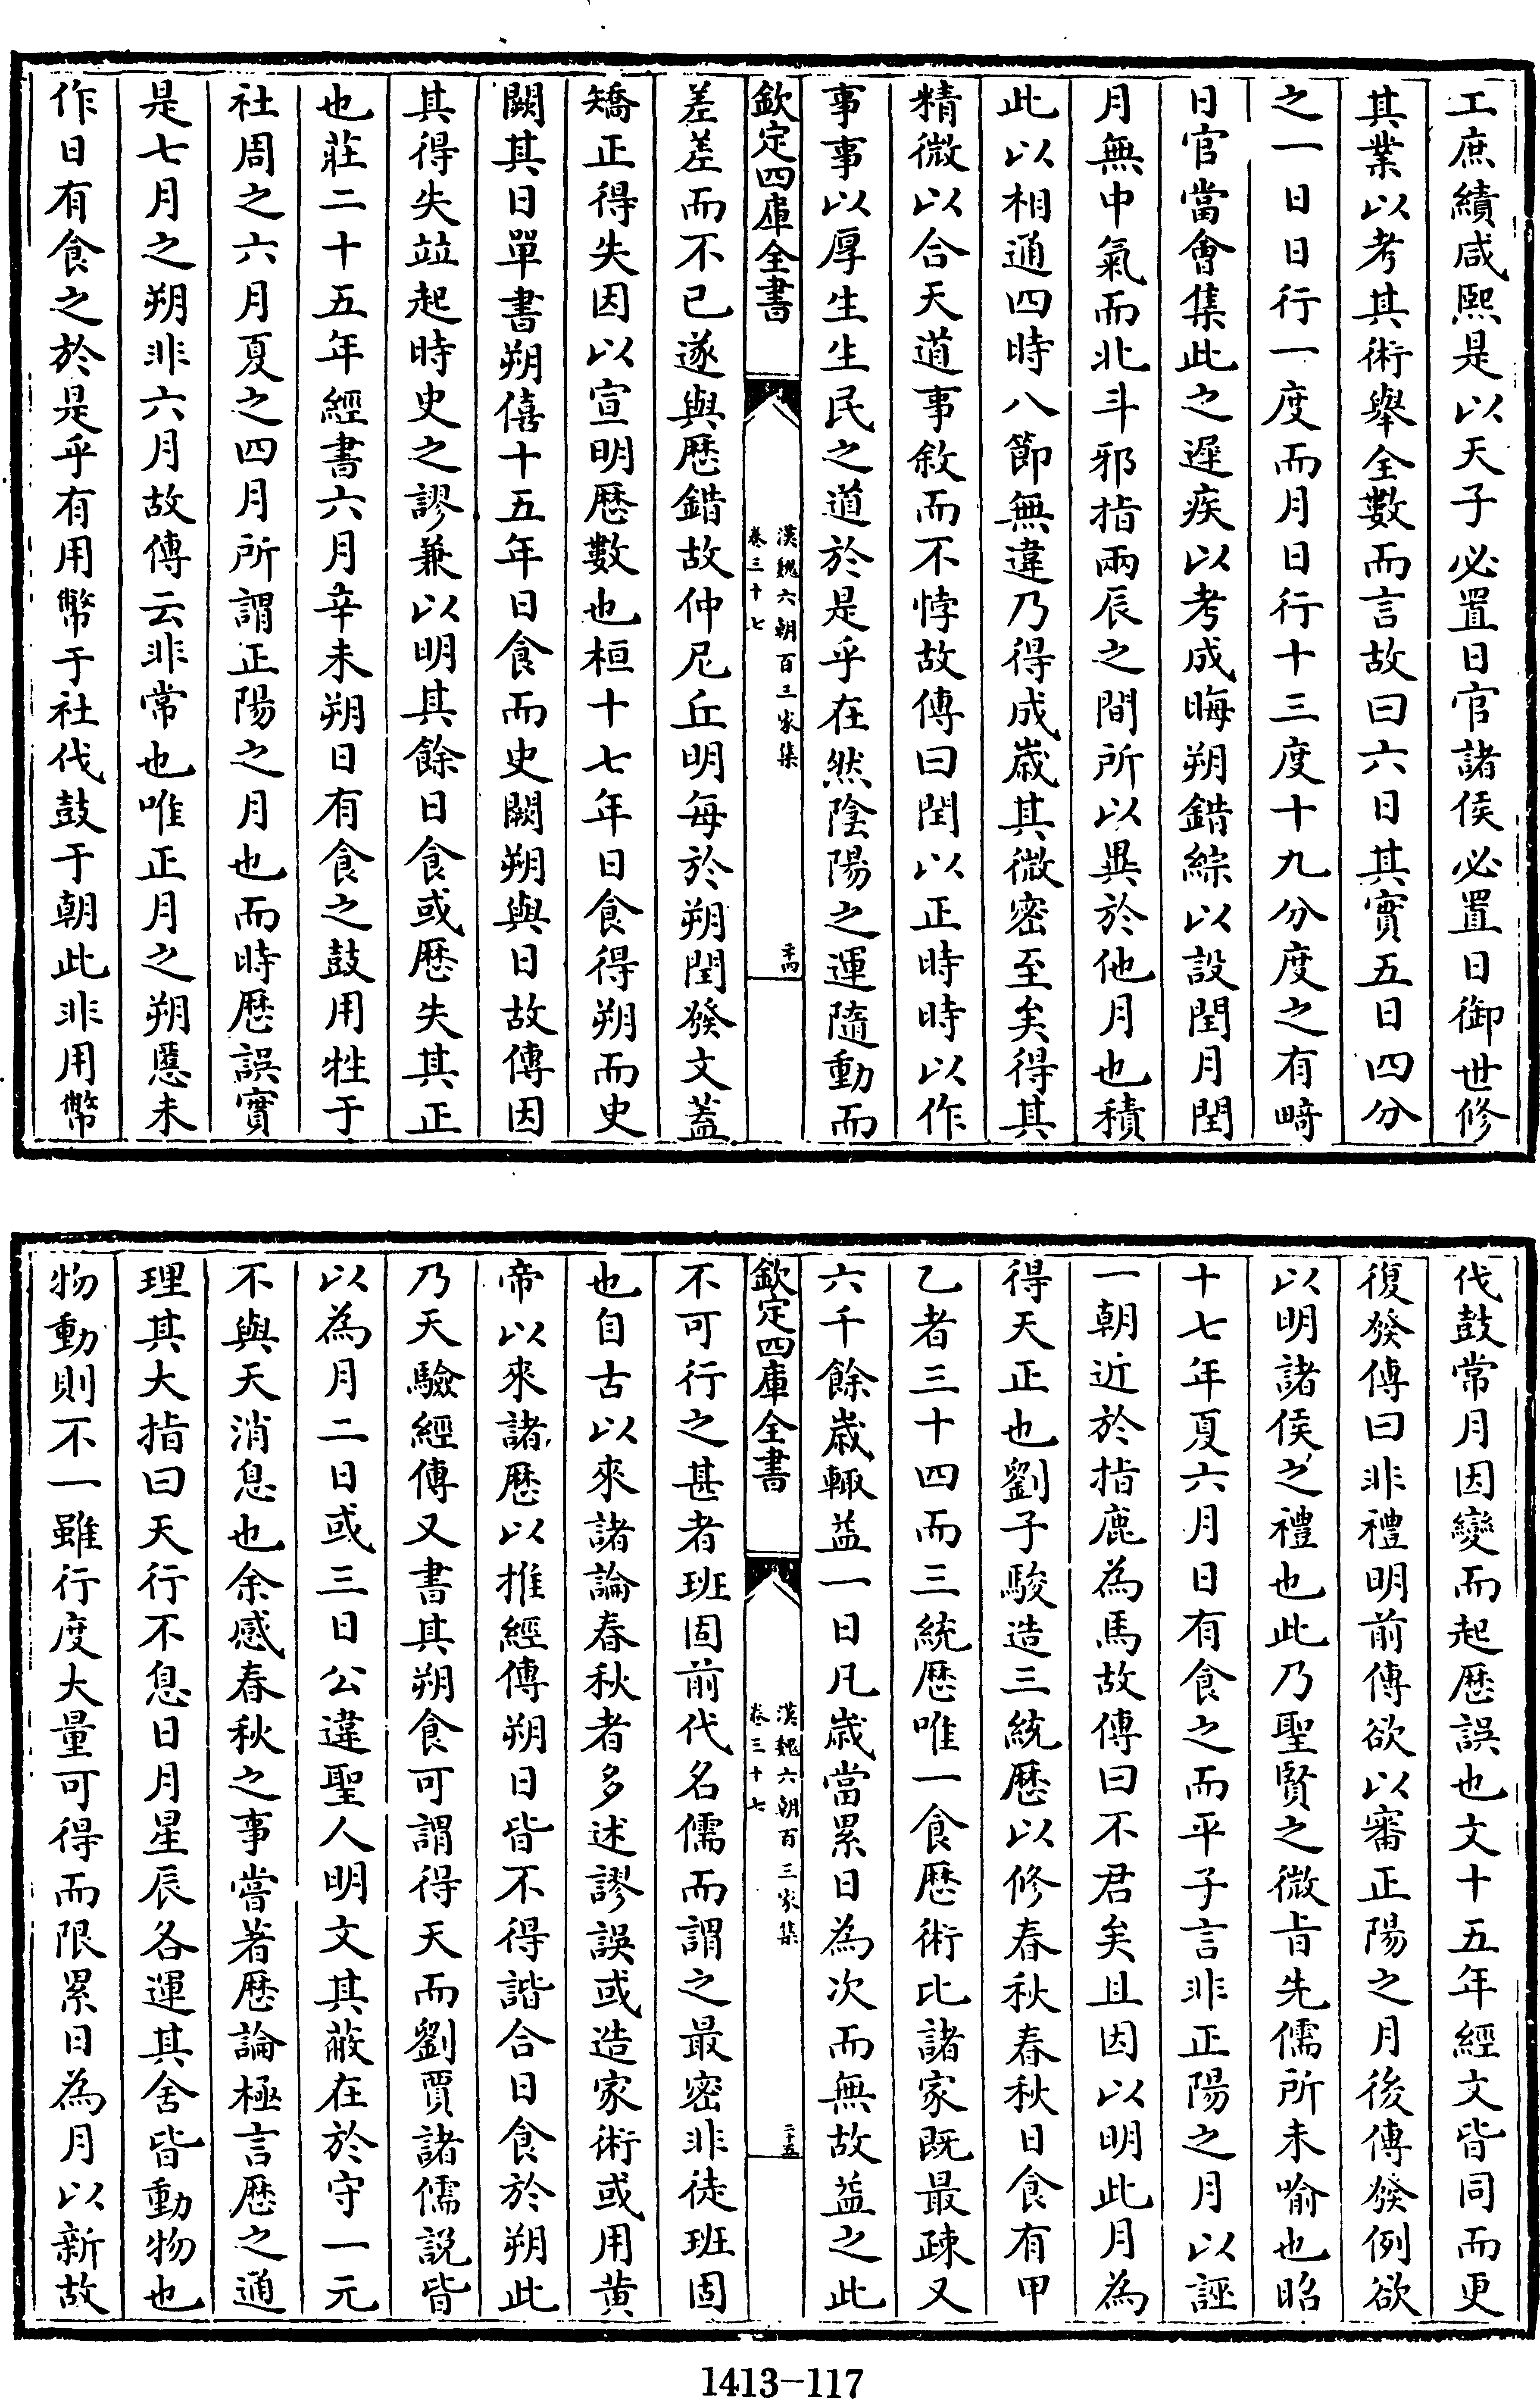 工庶績咸熙是以天子必置日官諸侯必置日御世修
其業以考其術舉全數而言故曰六日其實五日四分
之一日日行一度而月日行十三度十九分度之有畸
日官當會集此之遲疾以考成晦朔錯綜以設閏月閏
月無中氣而北斗邪指兩辰之間所以異於他月也積
此以相通四時八節無違乃得成歲其微密至矣得其
精微以合天道事敘而不悖故傳曰閏以正時時以作
事事以厚生生民之道於是乎在然陰陽之運隨動而
欽定四庫全書
漢魏六朝百三家集
卷三十七
二十四
差差而不已遂與歷錯故仲尼丘明每於朔閏發文蓋
矯正得失因以宣明歷數也桓十七年日食得朔而史
闕其日單書朔僖十五年日食而史闕朔與日故傳因
其得失竝起時史之謬兼以明其餘日食或歷失其正
也莊二十五年經書六月辛未朔日有食之鼓用牲于
社周之六月夏之四月所謂正陽之月也而時歷誤實
是七月之朔非六月故傳云非常也唯正月之朔慝未
作日有食之於是乎有用幣于社伐鼓于朝此非用幣
伐鼓常月因變而起歷誤也文十五年經文皆同而更
復發傳曰非禮明前傳欲以審正陽之月後傳發例欲
以明諸侯之禮也此乃聖賢之微旨先儒所未喻也昭
十七年夏六月日有食之而平子言非正陽之月以誣
一朝近於指鹿為馬故傳曰不君矣且因以明此月為
得天正也劉子駿造三統歷以修春秋春秋日食有甲
乙者三十四而三統歷唯一食歷術比諸家既最疎又
六千餘歲輒益一日凡歲當累日為次而無故益之此
欽定四庫全書
漢魏六朝百三家集
卷三十七
二十五
不可行之甚者班固前代名儒而謂之最密非徒班固
也自古以來諸論春秋者多述謬誤或造家術或用黃
帝以來諸歷以推經傳朔日皆不得諧合日食於朔此
乃天驗經傳又書其朔食可謂得天而劉賈諸儒説皆
以為月二日或三日公違聖人明文其蔽在於守一元
不與天消息也余感春秋之事嘗著歷論極言歷之通
理其大指曰天行不息日月星辰各運其舍皆動物也
物動則不一雖行度大量可得而限累日為月以新故
1413-117